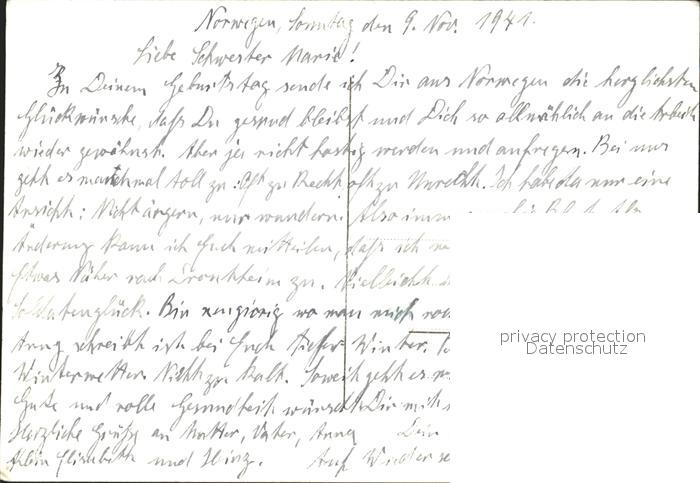 Norwegen, Sonntag den 9. Nov. 1941.
Liebe Schwester Marie!
Zu Deinem Geburtstag sende ich Dir aus Norwegen die herzlichsten
Glückwünsche, daß Du gesund bleibst und Dich so allmählich an die Arbeit
wieder gewöhnst. Aber ja nicht hastig werden und aufregen. Bei uns
geht es manchmal toll zu. Oft zu Recht oft zu Unrecht. Ich habe da nur eine
Ansicht: Nicht ärgern, nur wundern. Also
Änderung kann ich Euch mitteilen, daß ich
Etwas Näher nach Drontheim zu. Vielleicht
Soldatenglück. Bin neugierig wo man mich
Anna schreibt ist bei Euch tiefer Winter.
Winterwetter. Nicht zu kalt. Soweit geht es
Gute und volle Gesundheit wünscht Dir
Herzliche Grüße an Mutter, Vater, Anna Dein
Klein Elisabeth und Heinz. Auf Wieder
privacy protection
Datenschutz